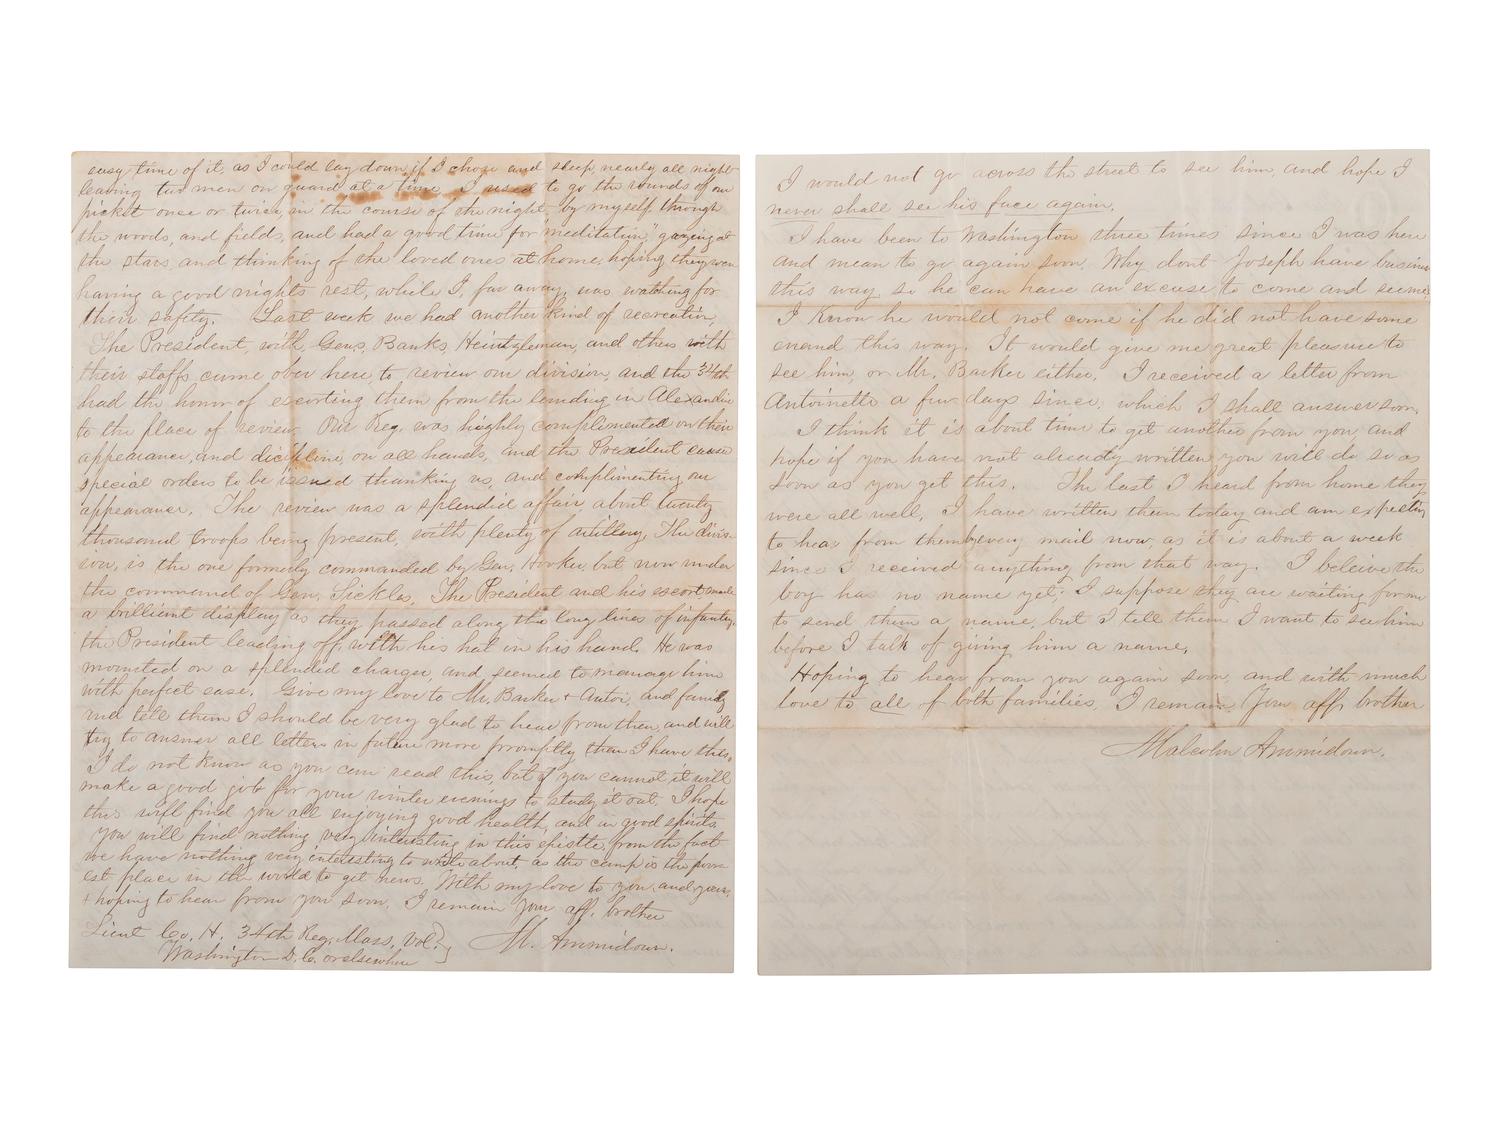 easy time of it, as I could lay down if I chose and sleep nearly all night
leaving two men on guard at a time. I used to go the rounds of our
picket once or twice, in the course of the night, by myself through
the woods, and fields, and had a good time for meditation," gazing at
the stars, and thinking of the loved ones at home, hoping they were
having a good nights rest, while I, far away, was watching for
their safety. Last week we had another kind of recreation,
The President, with Gens, Banks, Heintzleman, and others with
their staffs came over here, to review our division, and the 34th
had the honor of escorting them from the landing in Alexandria
to the place of review. Our Reg. was highly complimented on their
appearance, and dicipline, on all hands, and the President cause
special orders to be issued thanking us, and complimenting our
appearance. The review was a splendid affair, about twenty
thousand troops being present, with plenty of artillery. The divis-
ion, is the one formerly commanded by Gen. Hooker, but now under
the command of Gen. Sickles. The President and his escort made
a brilliant display as they passed along the long lines of infantry.
the President leading off, with his hat in his hand. He was
mounted on a splendid charger, and seemed to manage him
with perfect ease. Give my love to Mr. Barker + Antoi, and family
and tell them I should be very glad to hear from them, and will
try to answer all letters in future more promptly than I have this.
I do not know as you can read this, but if you cannot it will
make a good job for your winter evenings to study it out. I hope
this will find you all enjoying good health, and in good spirits.
You will find nothing very interesting in this epistle, from the fact
we have nothing very interesting to write about, as the camp is the poor-
est place in the world to get news. With my love to you, and yours,
+ hoping to hear from you soon, I remain your aff. brother
Lieut Co. H. 34th Reg. Mass, Vol. M. Ammidown.
Washington D. C. or elsewhere
I would not go across the street to see him, and hope I
never shall see his face again.
I have been to Washington three times since I was here
and mean to go again soon. Why dont Joseph have busine
this way so he can have an excuse to come and see me,
I know he would not come if he did not have some
errand this way. It would give me great pleasure to
see him, or Mr. Barker either. I received a letter from
Antoinette a few days since, which I shall answer soon.
I think it is about time to get another from you, and
hope if you have not already written you will do so as
soon as you get this. The last I heard from home they
were all well, I have written them today and am expecting
to hear from them every mail now, as it is about a week
since I received anything from that way. I beleive the
boy has no name yet. I suppose they are waiting for me
to send them a name, but I tell them I want to see him
before I talk of giving him a name,
Hoping to hear from you again soon, and with much
love to all of both families, I remain Your aff, brother
Malcolm Ammidown.